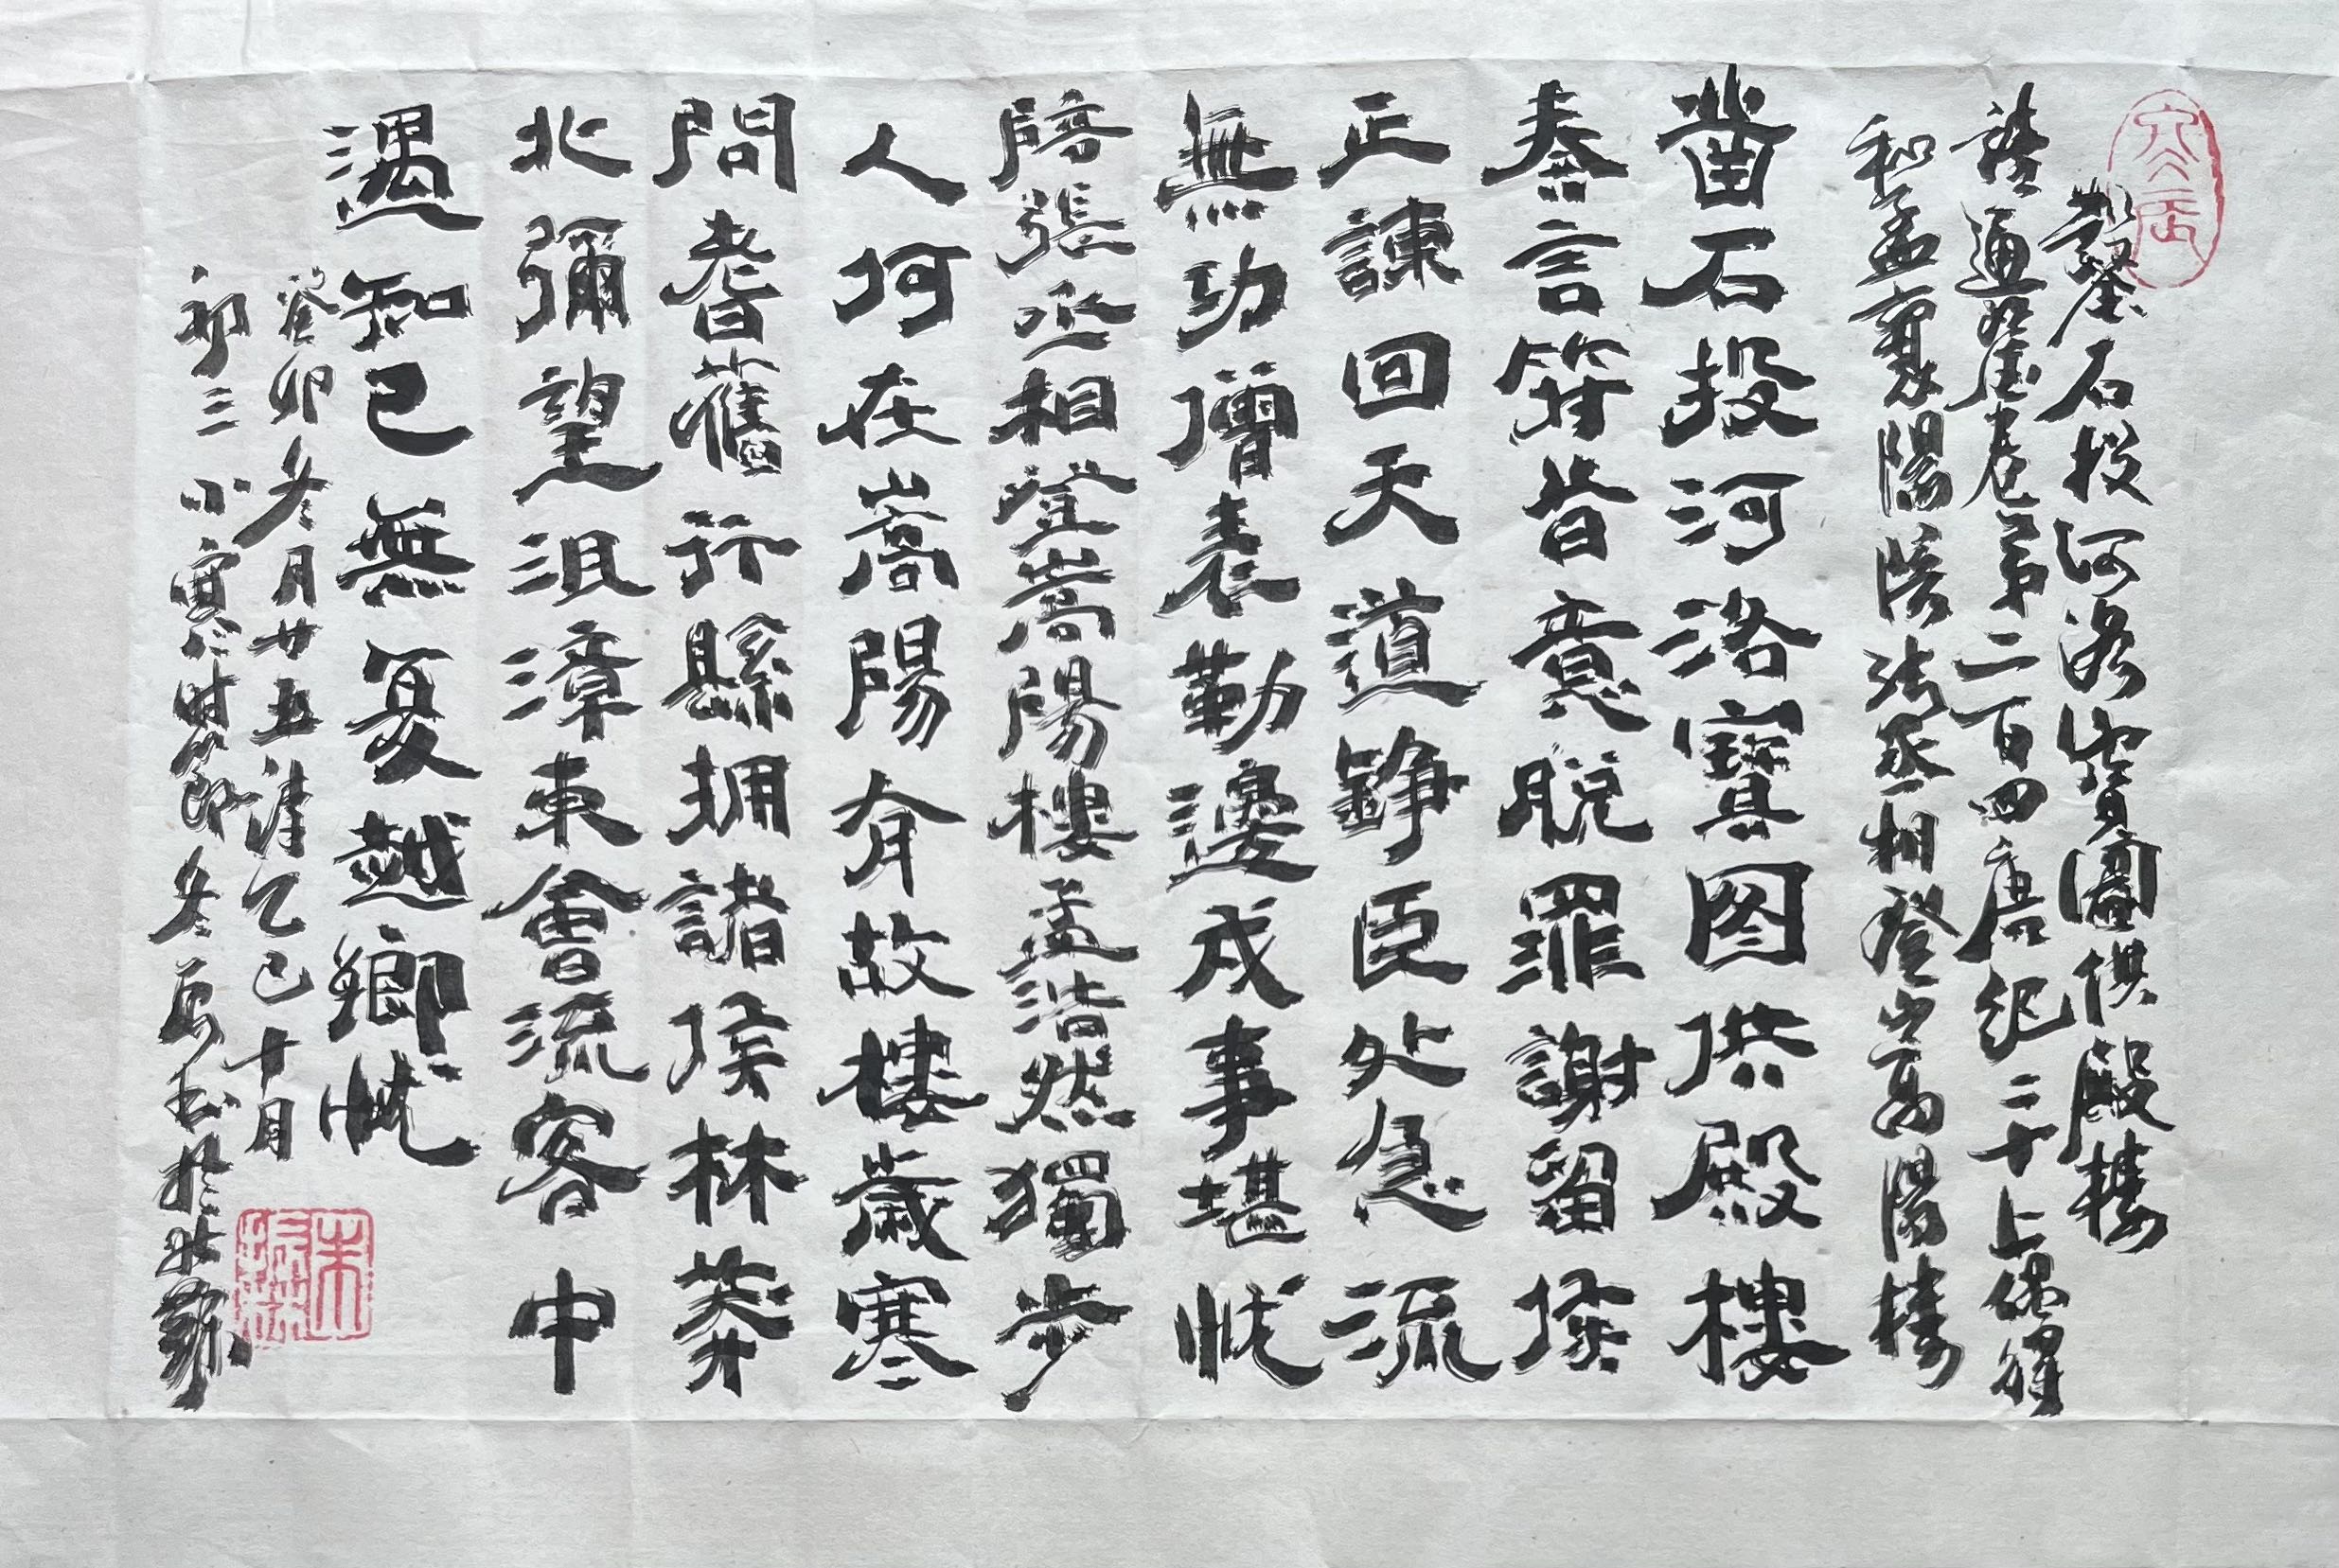 鑿石投河洛寳圖供殿樓
讀通鑒卷第二百四唐紀二十上偶得
和孟襄陽陪張丞相登嵩陽樓
凿石投河洛寶图供殿樓
奏言符昔意脱罪謝留侯
正諫回天道錚臣处急流
無功憎表勤邊戍事堪忧
陪張丞相登嵩陽樓孟浩然獨步
人何在嵩陽有故樓歲寒
問耆舊行縣拥諸侯林莽
北彌望沮漳東會流客中
遇知己無复越鄉忧
癸卯冬月廿五讀乙巳十月
初三小寒时节冬书於